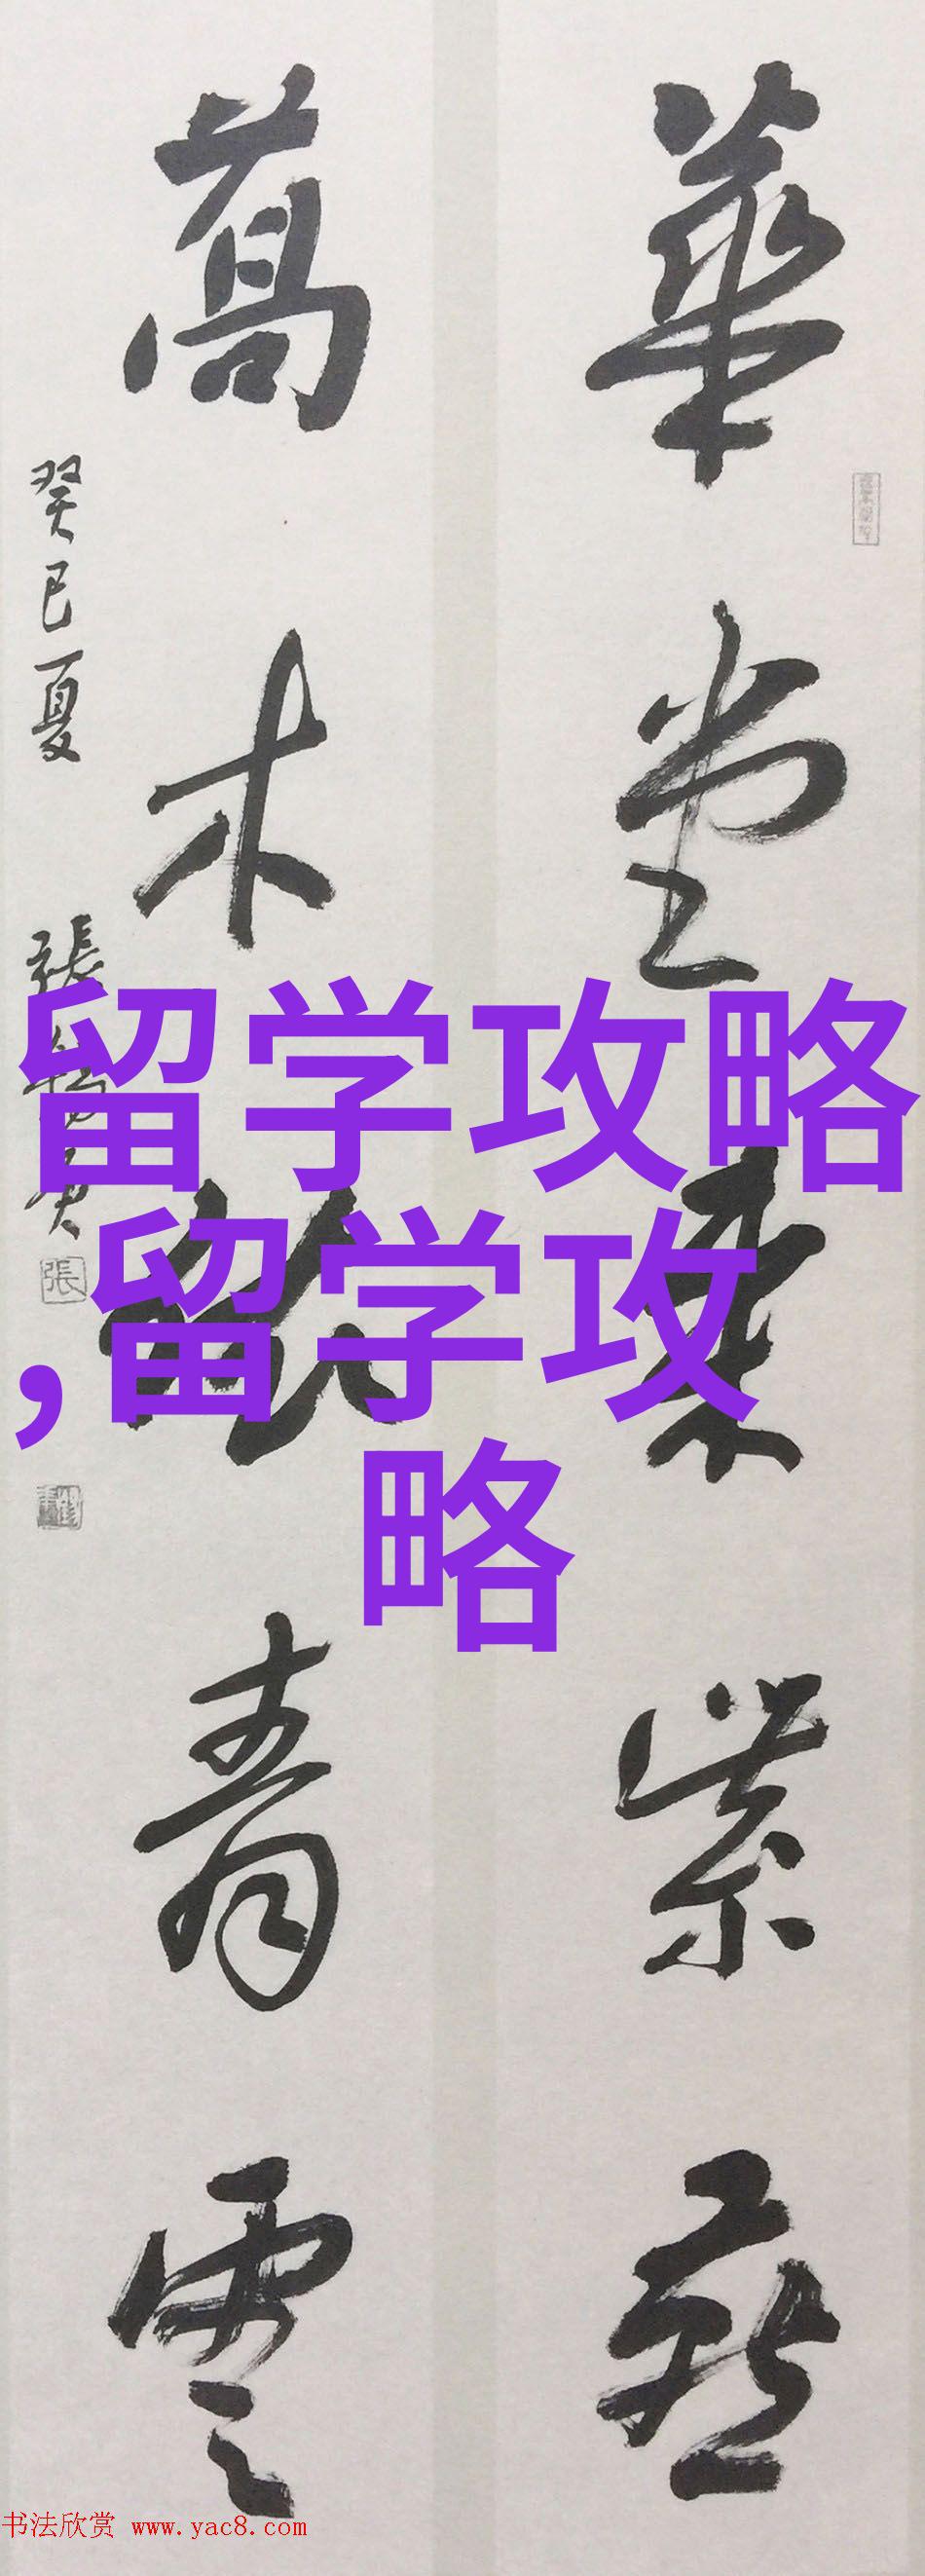 華堂來紫
萬木青雲
癸巳夏
張
張
留学攻略
,留学攻
略
书法欣赏 www.yac8.com